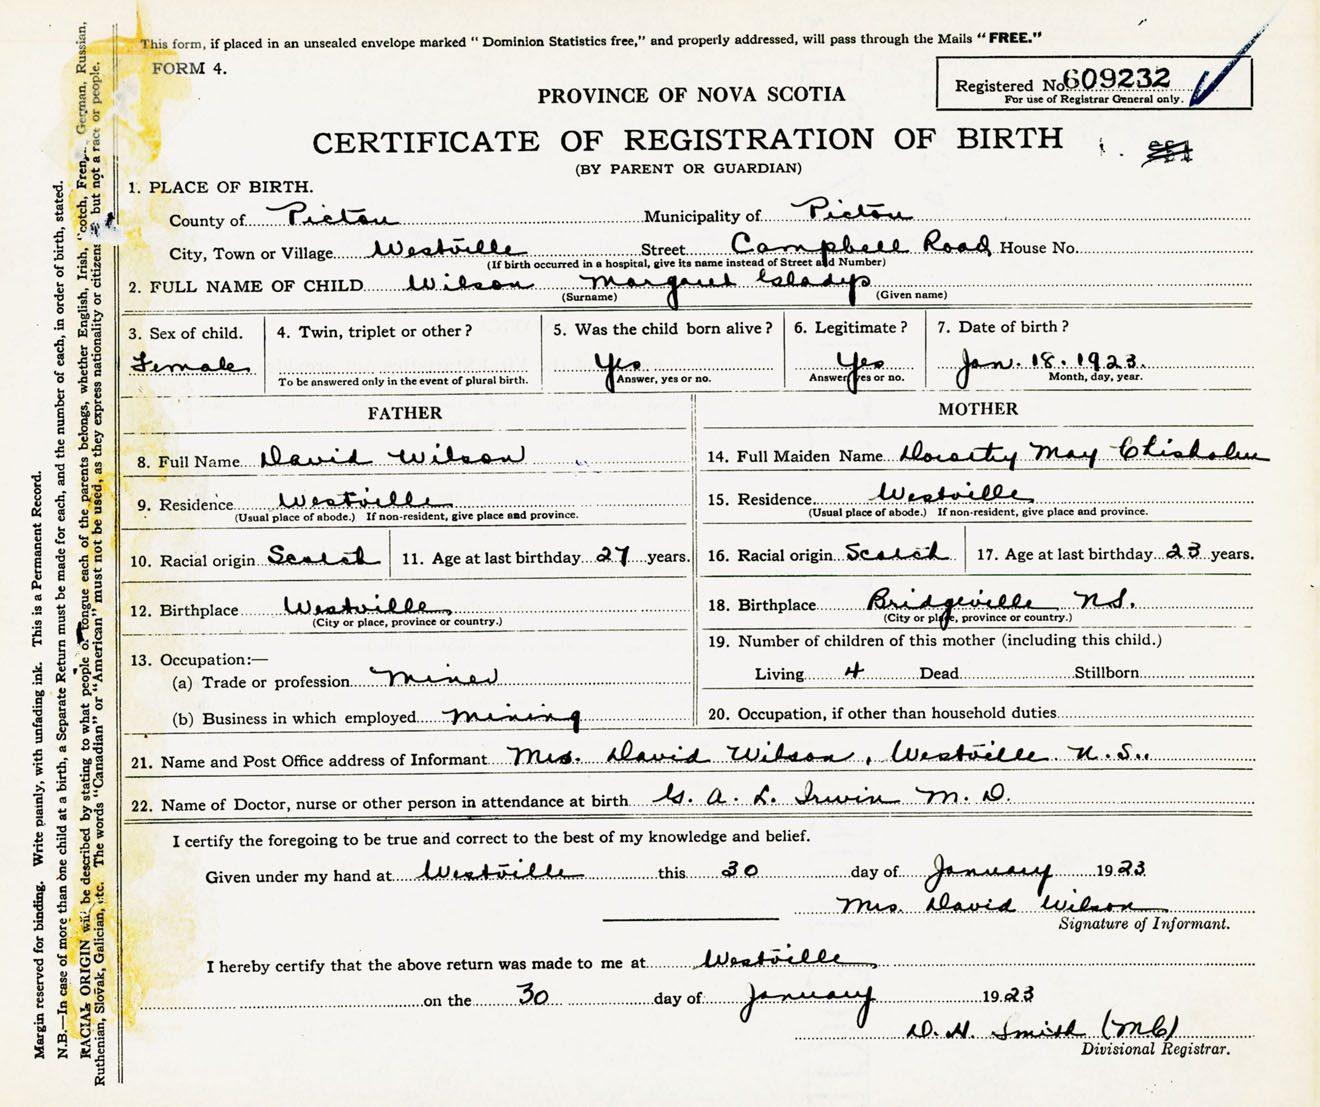 This form, if placed in an unsealed envelope marked "Dominion Statistics free," and properly addressed, will pass through the Mails "FREE."
FORM 4.
Registered No. 609232
For use of Registrar General only.
PROVINCE OF NOVA SCOTIA
CERTIFICATE OF REGISTRATION OF BIRTH
(BY PARENT OR GUARDIAN)
1. PLACE OF BIRTH.
County of Pictou Municipality of Pictou
City, Town or Village Westville Street Campbell Road House No.
(If birth occurred in a hospital, give its name instead of Street and Number)
2. FULL NAME OF CHILD Wilson Margaret Gladys
(Surname) (Given name)
3. Sex of child. 4. Twin, triplet or other? 5. Was the child born alive? 6. Legitimate? 7. Date of birth?
Female Yes Yes Jan. 18. 1923.
To be answered only in the event of plural birth. Answer, yes or no. Answer, yes or no. Month, day, year.
FATHER
8. Full Name David Wilson
9. Residence Westville
(Usual place of abode.) If non-resident, give place and province.
10. Racial origin Scotch 11. Age at last birthday 27 years.
12. Birthplace Westville
(City or place, province or country.)
13. Occupation:—
(a) Trade or profession Miner
(b) Business in which employed Mining
MOTHER
14. Full Maiden Name Dorothy May Chisholm
15. Residence Westville
(Usual place of abode.) If non-resident, give place and province.
16. Racial origin Scotch 17. Age at last birthday 23 years.
18. Birthplace Bridgeville N.S.
(City or place, province or country.)
19. Number of children of this mother (including this child.)
Living 4 Dead Stillborn
20. Occupation, if other than household duties
21. Name and Post Office address of Informant Mrs. David Wilson, Westville N.S.
22. Name of Doctor, nurse or other person in attendance at birth G. A. L. Irwin M. D.
I certify the foregoing to be true and correct to the best of my knowledge and belief.
Given under my hand at Westville this 30 day of January 1923
Mrs. David Wilson
Signature of Informant.
I hereby certify that the above return was made to me at Westville
on the 30 day of January 1923
D. H. Smith (MC)
Divisional Registrar.
Margin reserved for binding. Write plainly, with unfading ink. This is a Permanent Record.
N.B.—In case of more than one child at a birth, a Separate Return must be made for each, and the number of each, in order of birth, stated.
RACIAL ORIGIN will be described by stating to what people or tongue each of the parents belongs, whether English, Irish, Scotch, French, German, Russian,
Ruthenian, Slovak, Galician, etc. The words "Canadian" or "American" must not be used, as they express nationality or citizenship but not a race or people.